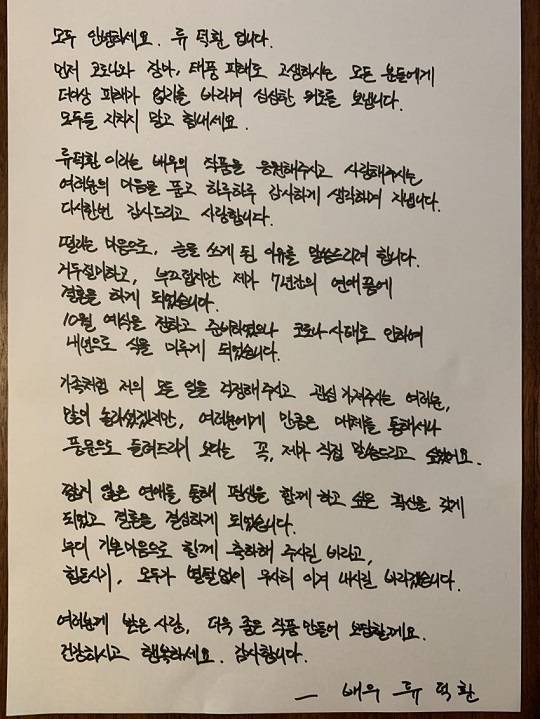 모두 안녕하세요. 류 덕환 입니다.
먼저 코로나와 장마, 태풍 피해로 고생하시는 모든 분들에게
더이상 피해가 없기를 바라며 심심한 위로를 보냅니다.
모두들 지치지 말고 힘내세요.
류덕환 이라는 배우의 작품을 응원해주시고 사랑해주시는
여러분의 마음을 품고 하루하루 감사하게 생각하며 지냅니다.
다시한번 감사드리고 사랑합니다.
떨리는 마음으로, 글을 쓰게 된 이유를 말씀드리려 합니다.
거두절미하고, 부끄럽지만 제가 7년간의 연애 끝에
결혼을 하게 되었습니다.
10월 예식을 정하고 준비하였으나 코로나 사태로 인하여
내년으로 식을 미루게 되었습니다.
가족처럼 저의 모든 일을 걱정해주시고 관심 가져주시는 여러분,
많이 놀라셨겠지만, 여러분에게 만큼은 매체를 통해서나
풍문으로 들려드리기 보다는 꼭, 제가 직접 말씀드리고 싶었어요.
짧지 않은 연애를 통해 평생을 함께 하고 싶은 확신을 갖게
되었고 결혼을 결심하게 되었습니다.
부디 기쁜마음으로 함께 축하해 주시길 바라고,
힘든시기, 모두가 별탈없이 무사히 이겨 내시길 바라겠습니다.
여러분께 받은 사랑, 더욱 좋은 작품 만들어 보답할게요.
건강하시고 행복하세요. 감사합니다.
— 배우 류 덕환